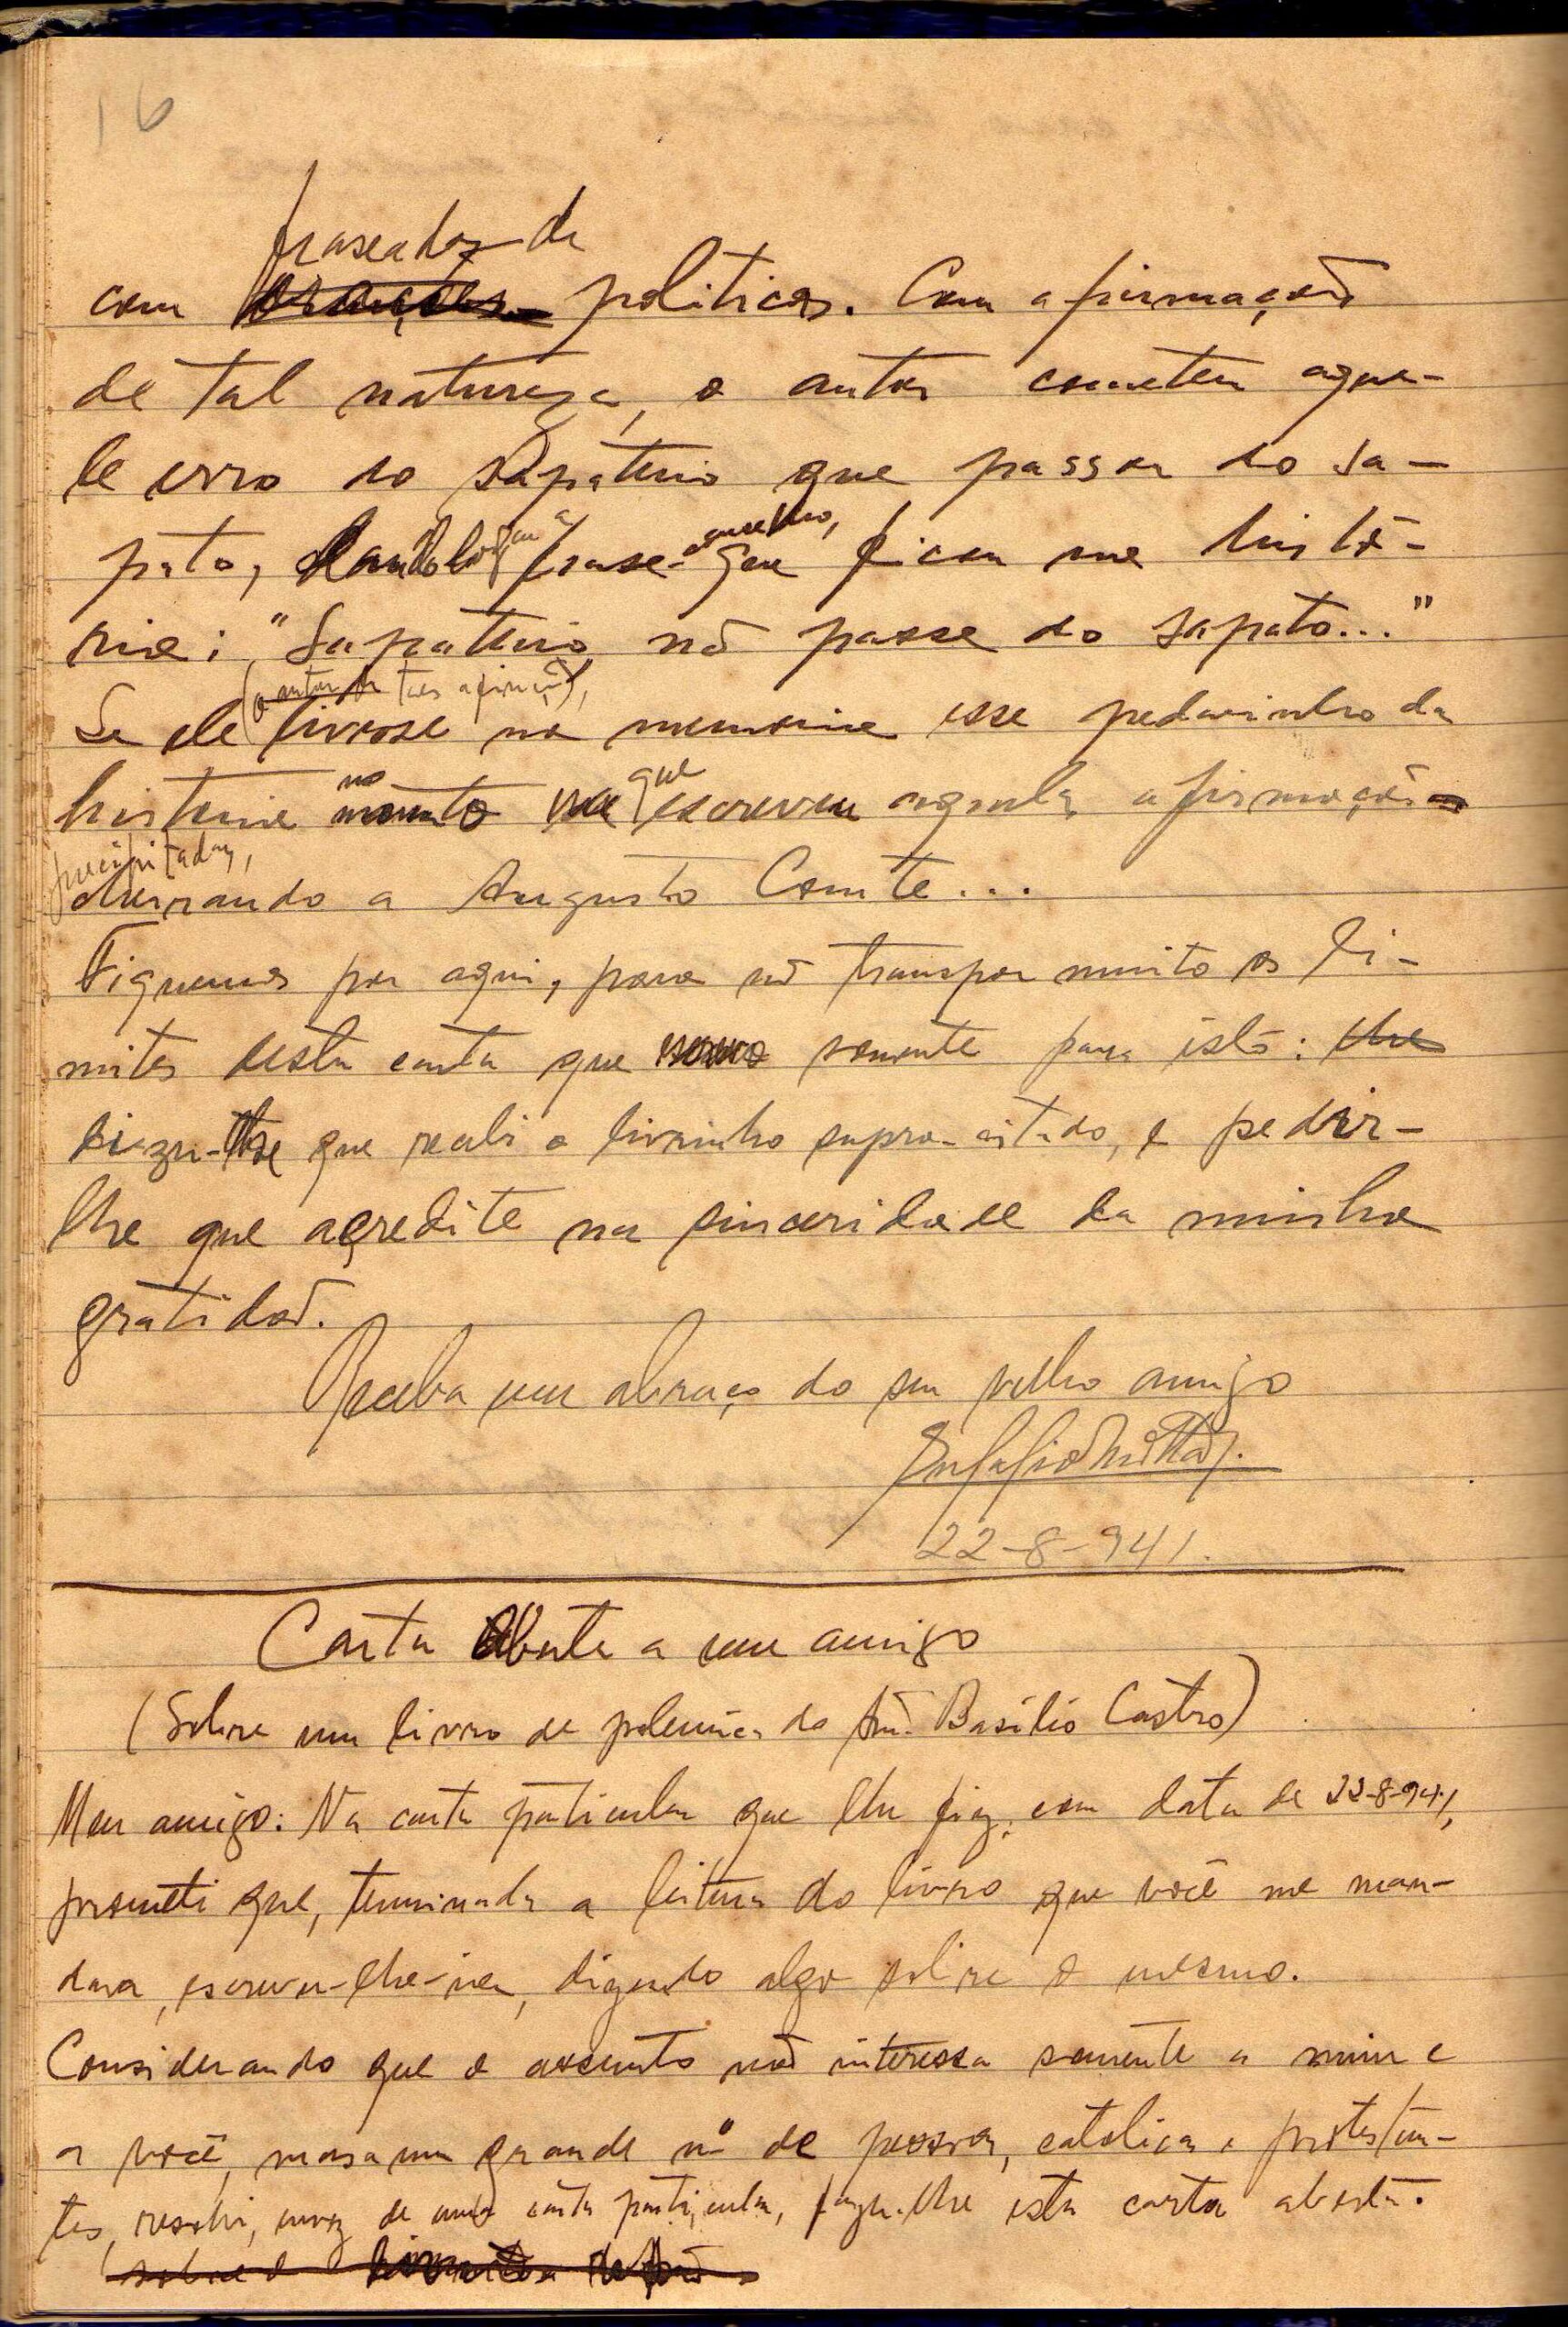 16
fraseados de
com orações politicas. Com afirmações
de tal natureza, o autor cometeu aque-
le erro do sapateiro que passou do sa-
pato, dando lugar à frase-conselho, que ficou na histó-
ria: "Sapateiro, não passe do sapato..."
(o autor de tais afirmações),
Se ele tivesse na memoria esse pedacinho da
historia no momento que escreveu aquelas afirmações
precipitadas,
a Augusto Comte...
Fiquemos por aqui, para não transpor muito os li-
mites desta carta que escrevo somente para isto: lhe
dizer-lhe que recebi o livrinho supra-citado, e pedir-
lhe que acredite na sinceridade da minha
gratidão.
Receba um abraço do seu velho amigo
22-8-941.
Carta Aberta a um amigo
(Sobre um livro de polemica do Snr. Basilio Castro)
Meu amigo: Na carta particular que lhe fiz, com data de 22-8-941,
prometi que, terminada a leitura do livro que você me man-
dara, escrever-lhe-ia, dizendo algo sobre o mesmo.
Considerando que o assunto não interessa somente a mim e
a você, mas a um grande nº de pessoas, catolicas e protestan-
tes, resolvi, envez de uma carta particular, fazer-lhe esta carta aberta.
sobre o